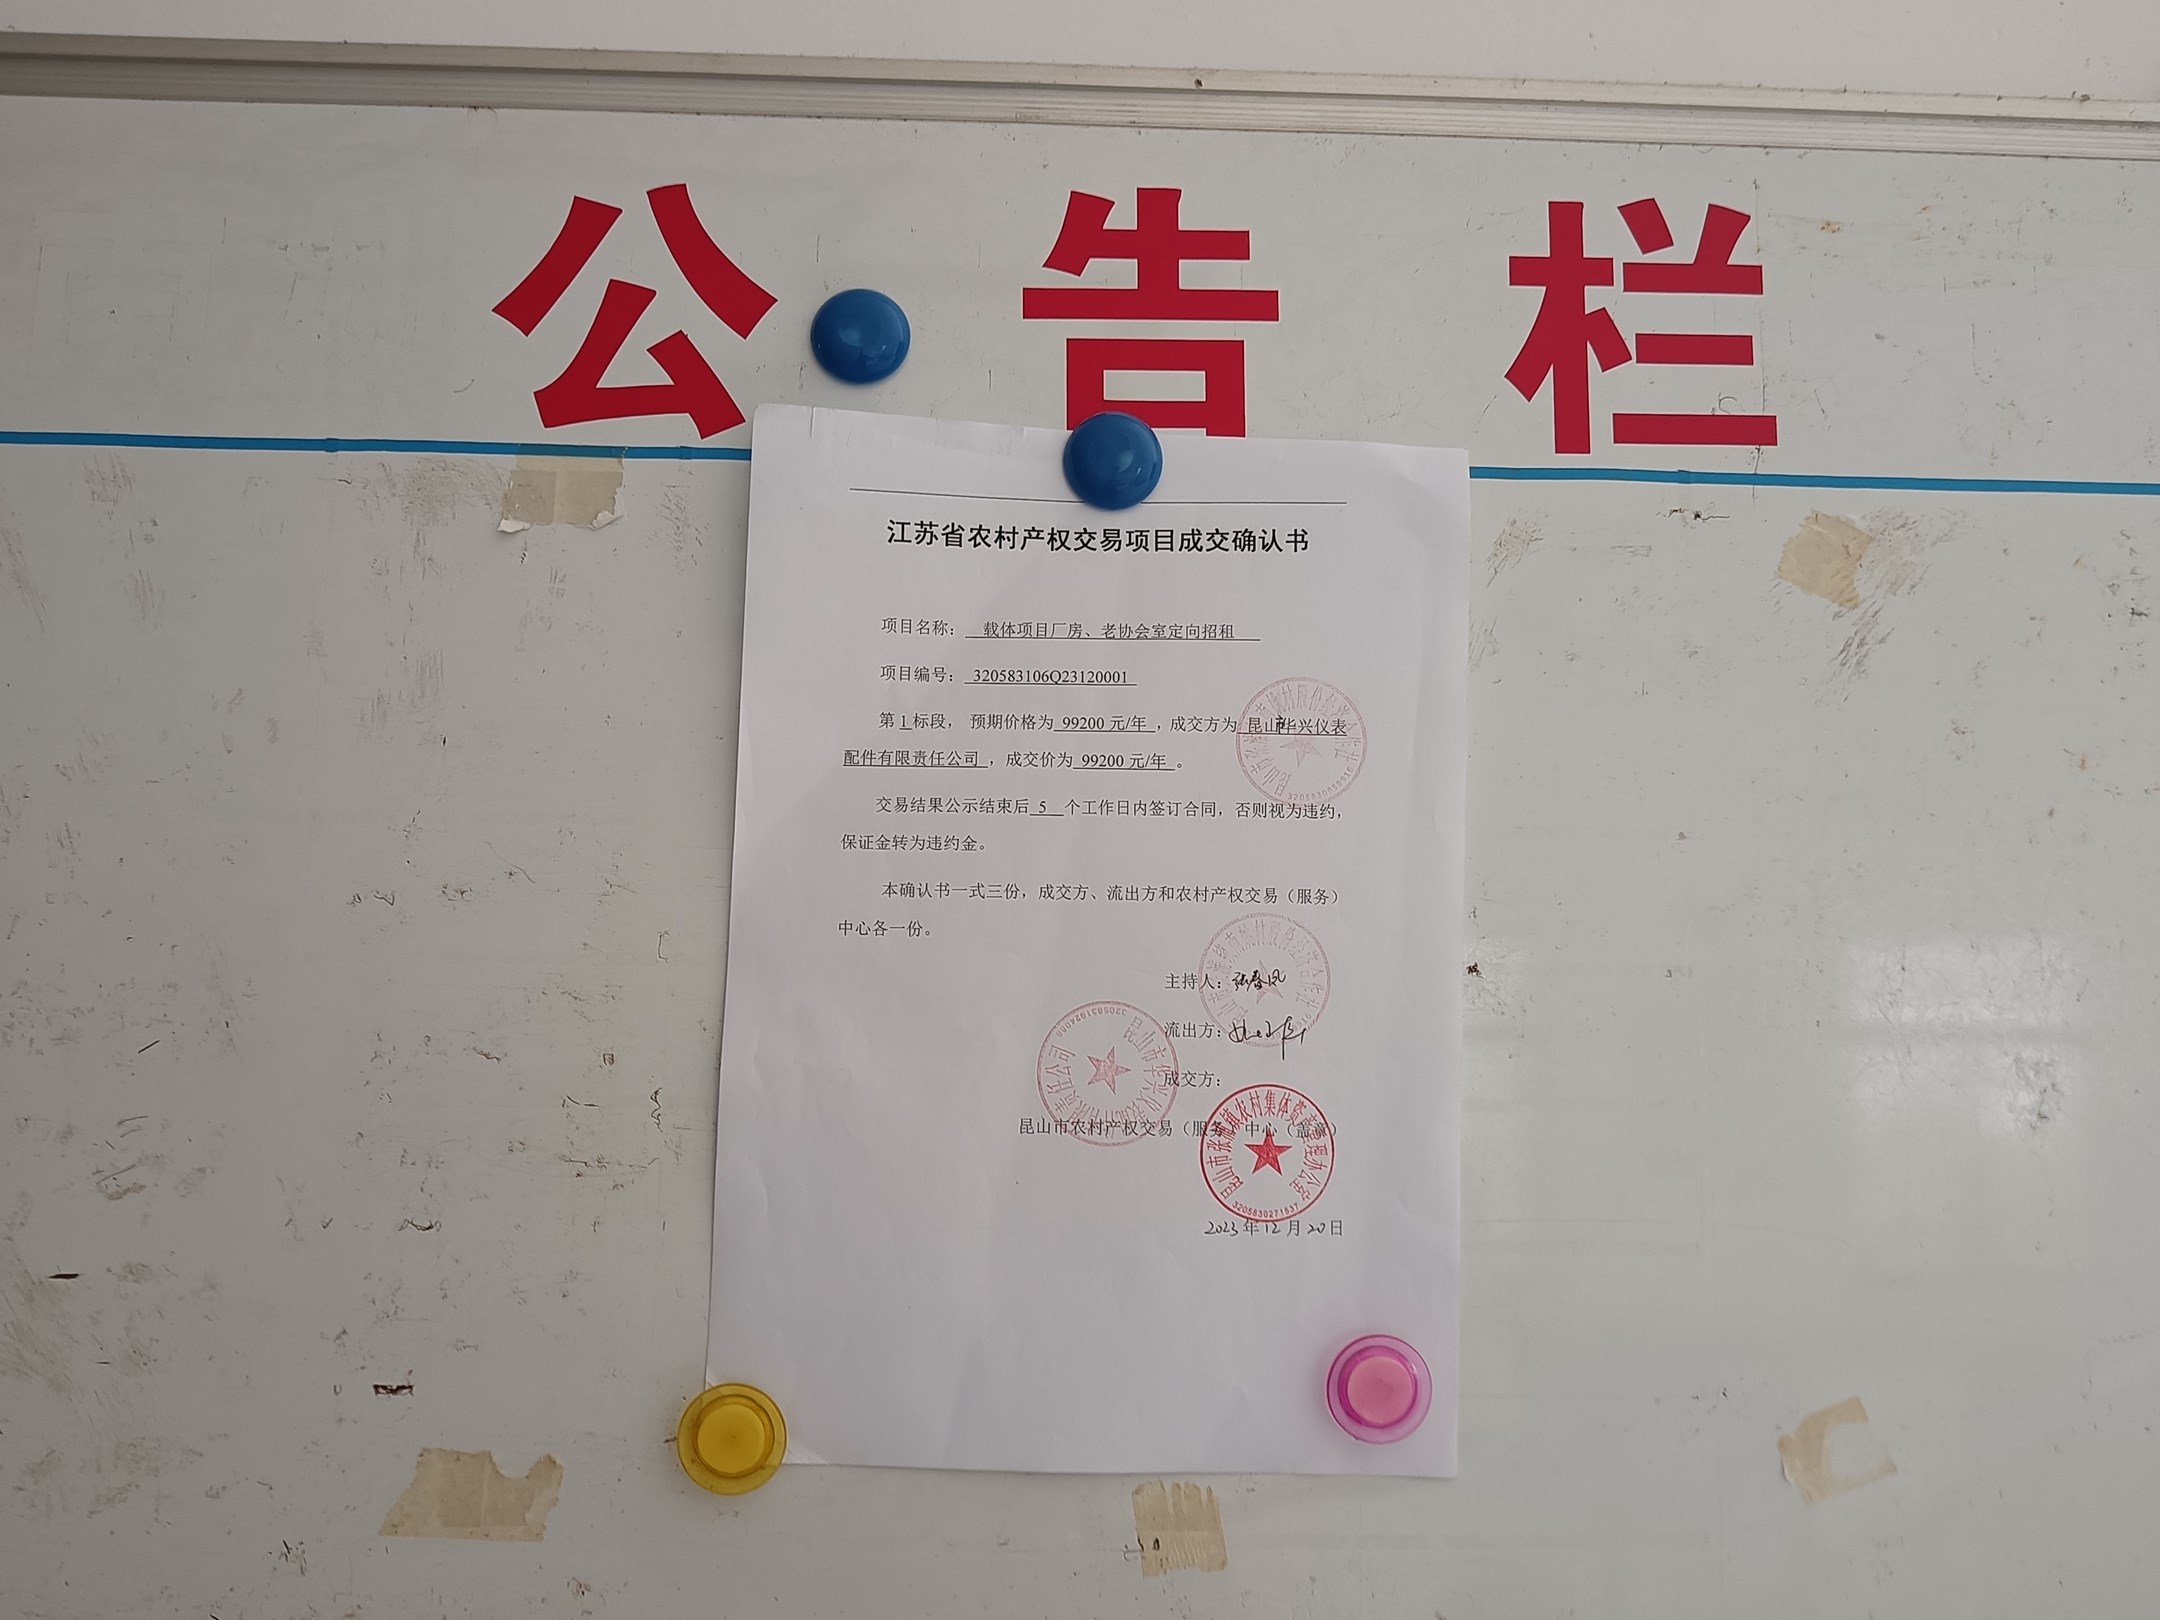 公告栏
江苏省农村产权交易项目成交确认书
项目名称： 载体项目厂房、老协会室定向招租
项目编号： 320583106Q23120001
第 1 标段， 预期价格为 99200 元/年 ，成交方为 昆山市华兴仪表
配件有限责任公司 ，成交价为 99200 元/年 。
交易结果公示结束后 5 个工作日内签订合同，否则视为违约，
保证金转为违约金。
本确认书一式三份，成交方、流出方和农村产权交易（服务）
中心各一份。
主持人：张春凤
流出方：
成交方：
昆山市农村产权交易（服务）中心（盖章）
昆山市张浦镇农村集体资产管理办公室
3205830271637
昆山市华兴仪表配件有限责任公司
2023年12月20日